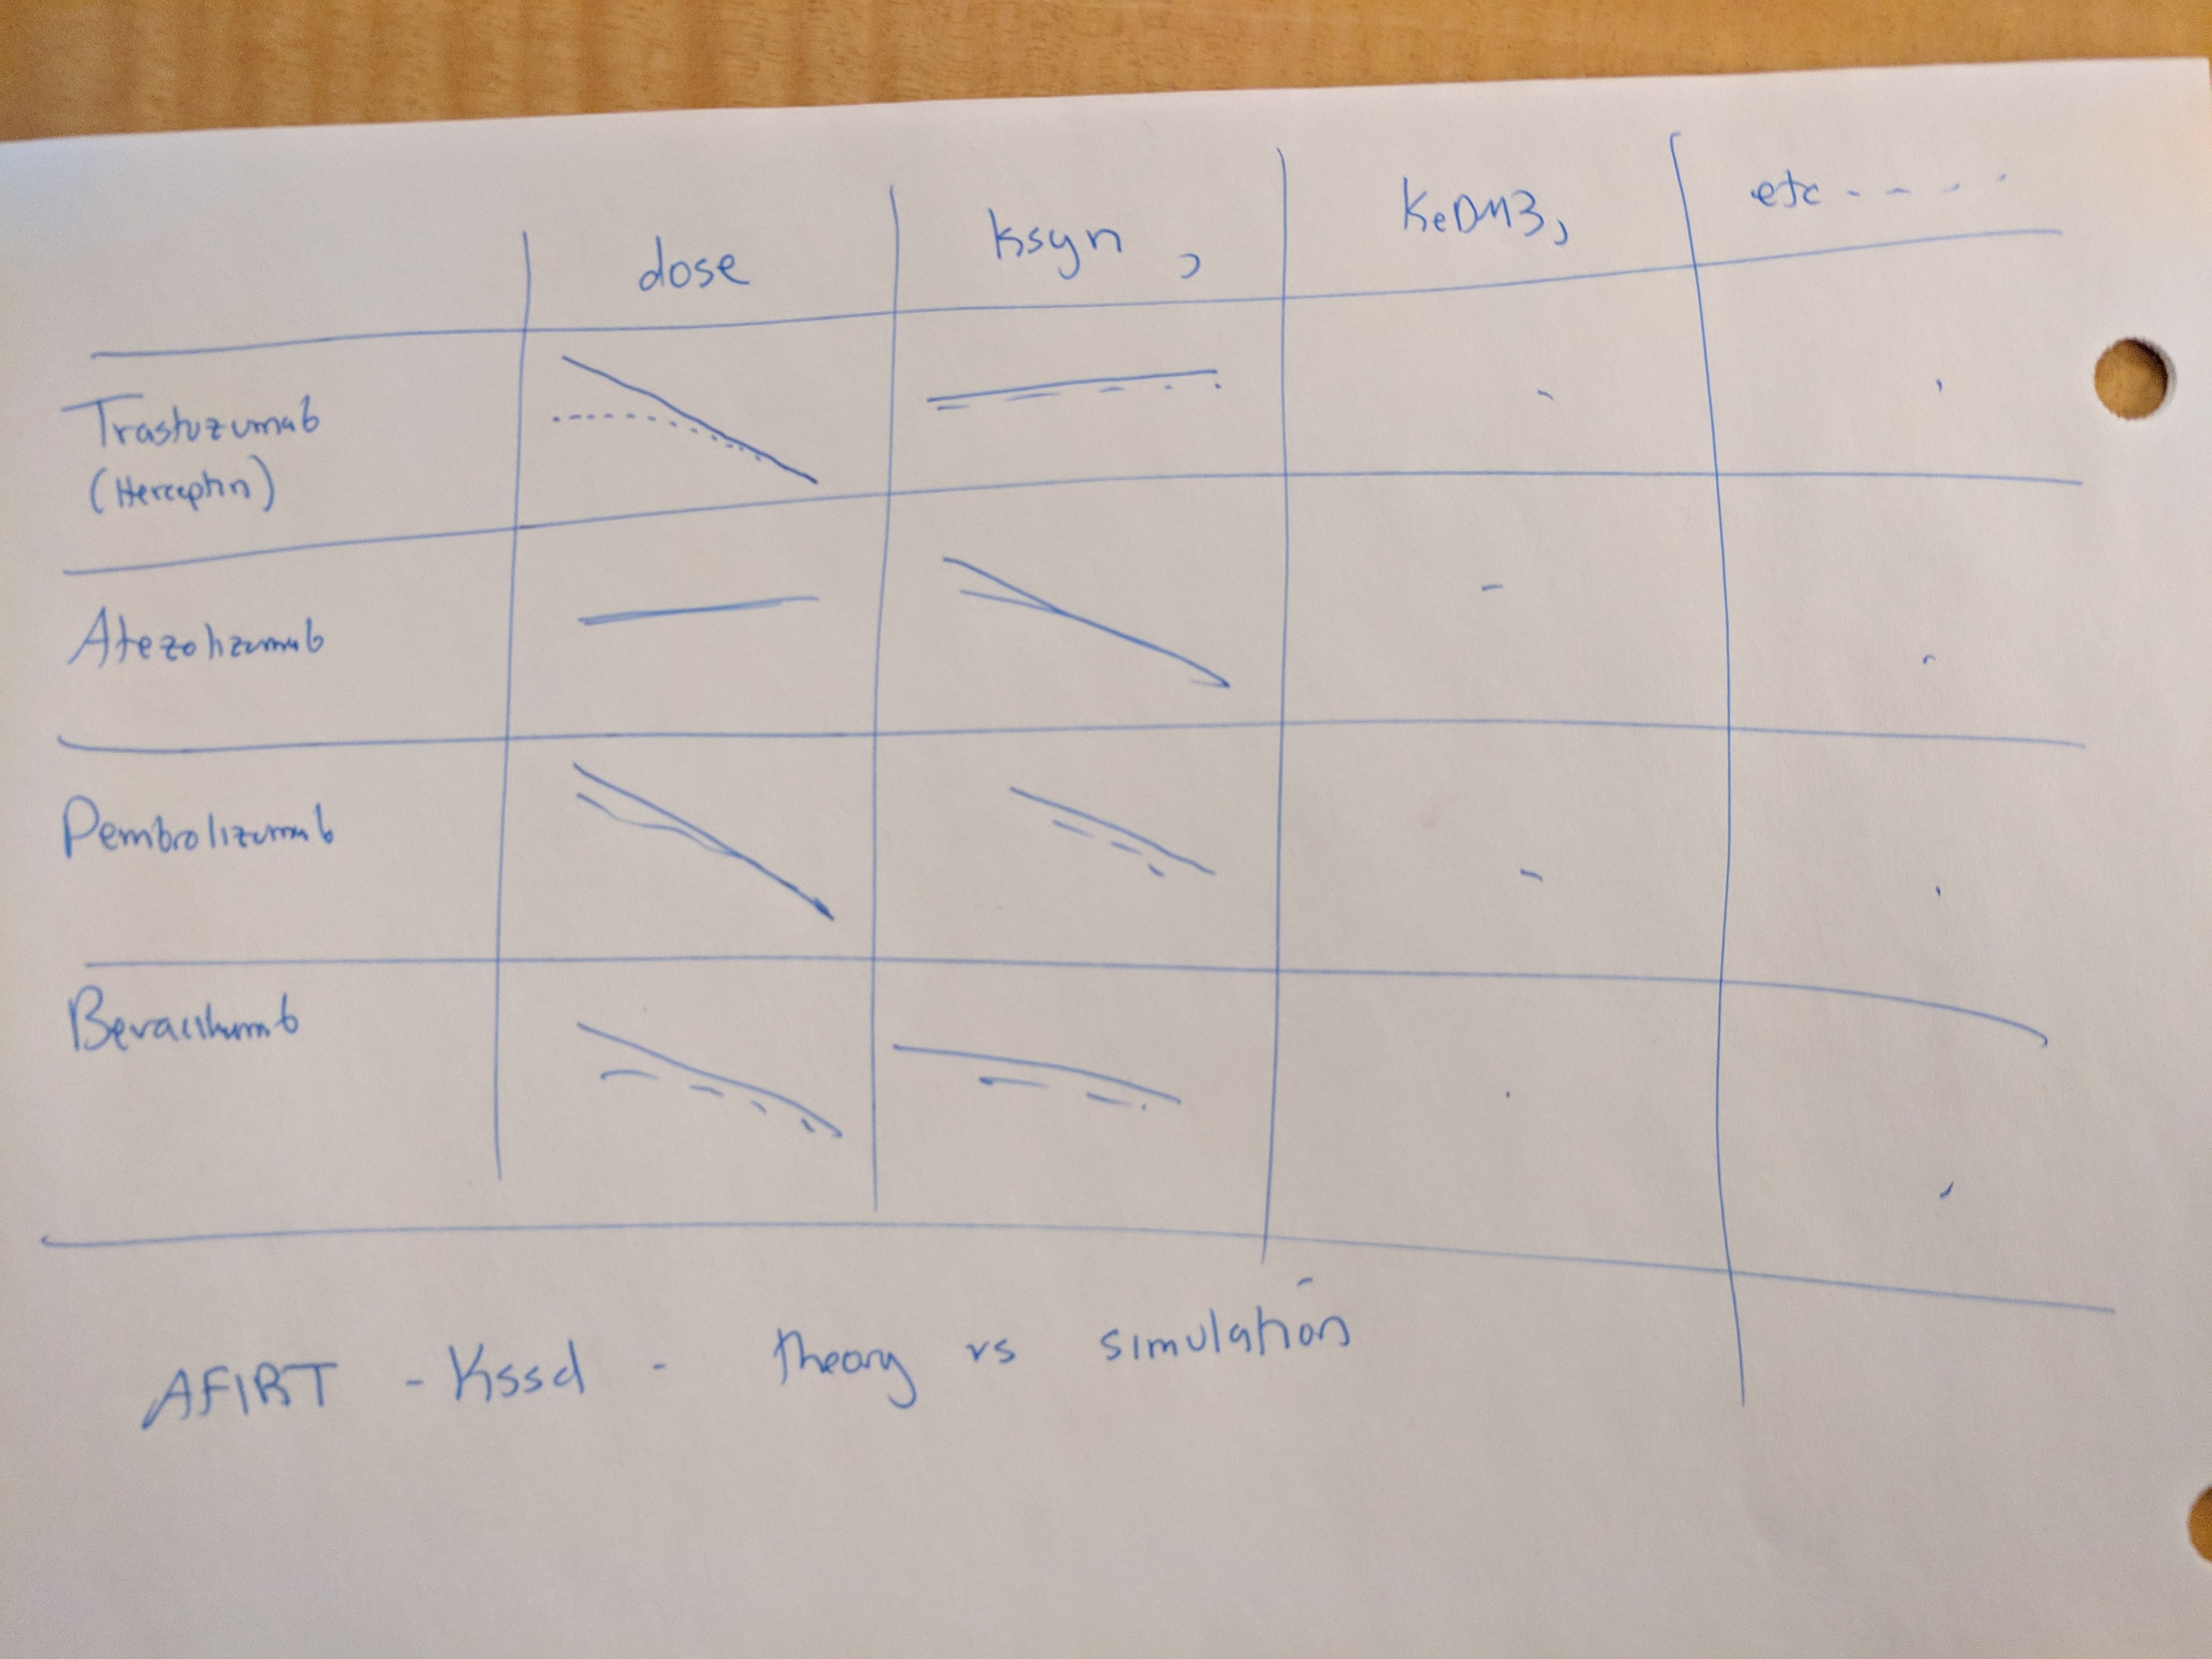 dose ksyn , KeDM3, etc - - - -
Trastuzumab
(Herceptin)
Atezolizumab
Pembrolizumab
Bevacizumab
AFIRT - Kssd - theory vs simulation